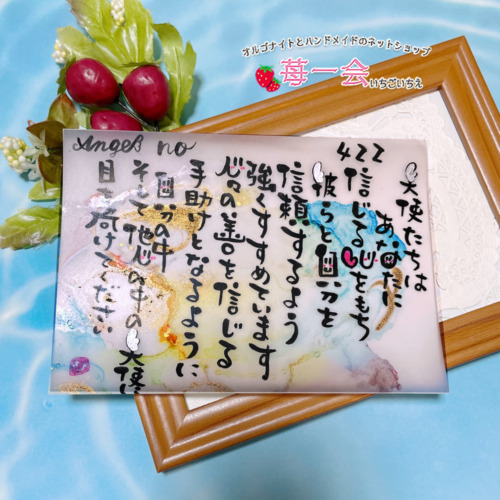 オルゴナイトとハンドメイドのネットショップ
苺一会
いちごいちえ
Angel no
422
天使たちは
あなたに
信じる心をもち
彼らと自分を
信頼するよう
強くすすめています
心々の善を信じる
手助けとなるように
自分の中
そして他人の中の天使
目を向けてください